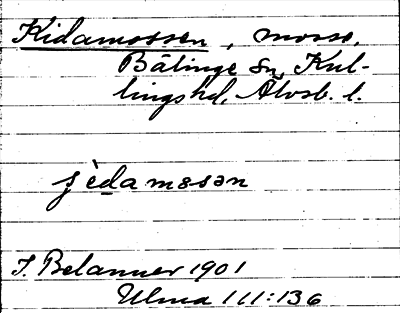 Kidamossen, mosse,
Bälinge sn, Kul-
lings hd, Älvsb. l.
jèdamssən
J. Belanner 1901
Ulma 111:136